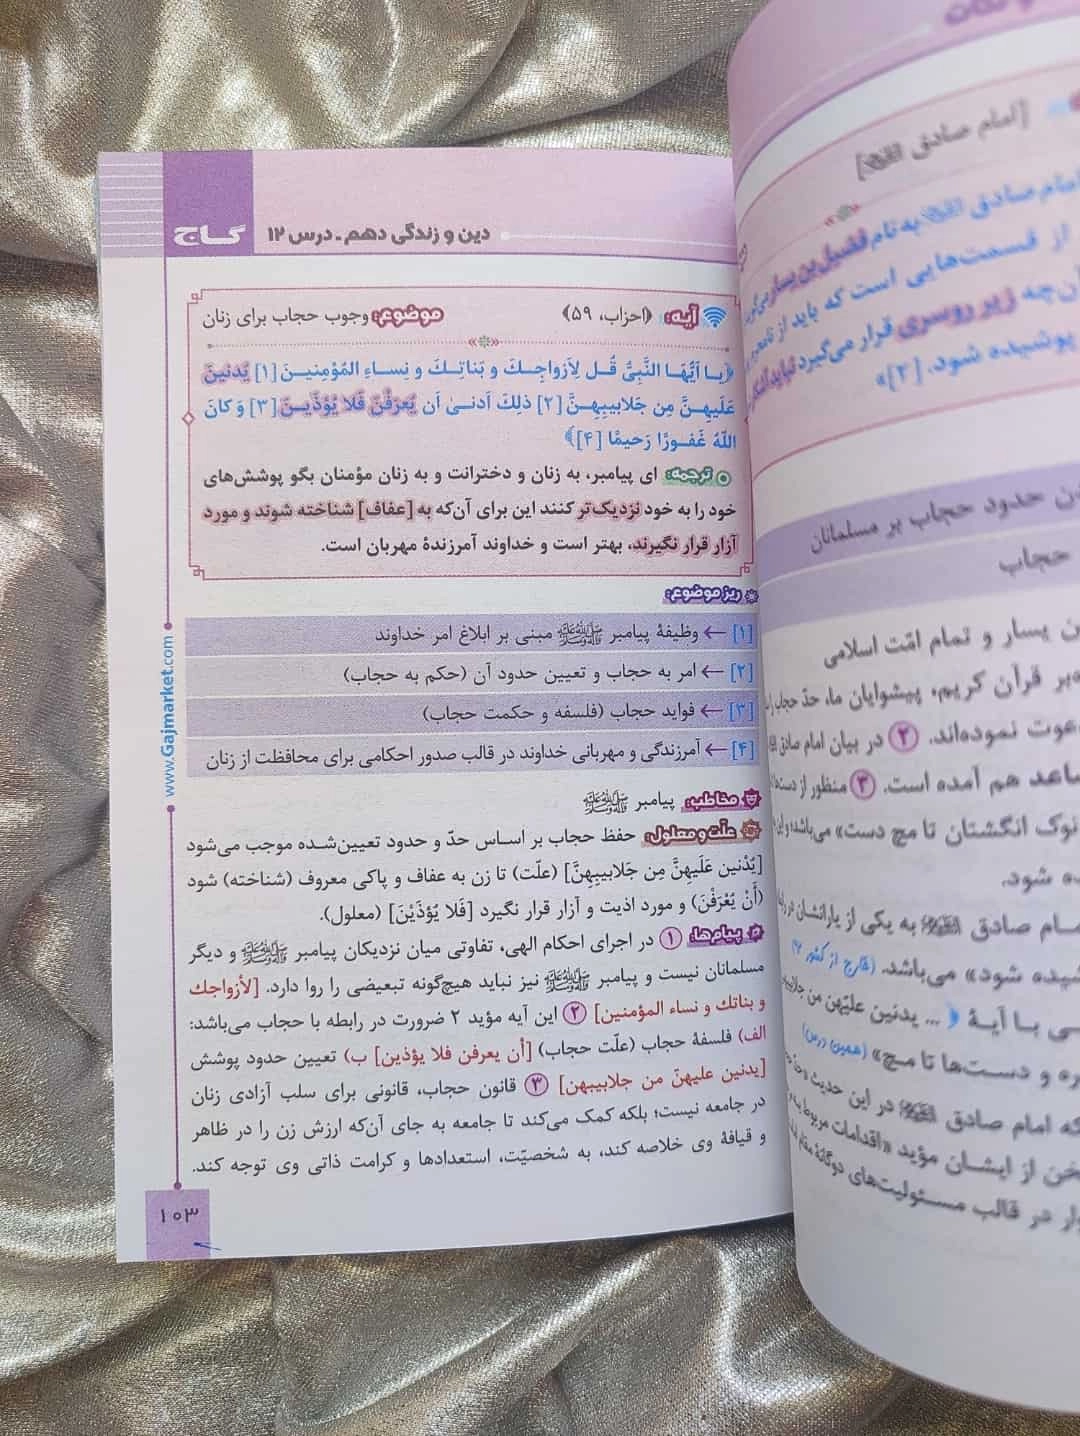 گاج
دین و زندگی دهم ـ درس ۱۲
آیه: ﴿احزاب، ۵۹﴾ موضوع: وجوب حجاب برای زنان
﴿یـا اَیُّهَـا النَّبِیُّ قُـل لِاَزواجِـكَ و بَناتِـكَ و نِسـاءِ المُؤمِنیـنَ [۱] یُدنیـنَ
عَلَیهِـنَّ مِن جَلابیبِهِـنَّ [۲] ذلِكَ اَدنیٰ اَن یُعرَفْنَ فَلا یُؤذَیـنَ [۳] وَ كانَ
اللّهُ غَفـورًا رَحیمًا [۴]﴾
ترجمه: ای پیامبر، به زنان و دخترانت و به زنان مؤمنان بگو پوشش‌های
خود را به خود نزدیک‌تر کنند این برای آن‌که به [عفاف] شناخته شوند و مورد
آزار قرار نگیرند، بهتر است و خداوند آمرزندهٔ مهربان است.
ریز موضوع:
[۱] ← وظیفهٔ پیامبر ﷺ مبنی بر ابلاغ امر خداوند
[۲] ← امر به حجاب و تعیین حدود آن (حکم به حجاب)
[۳] ← فواید حجاب (فلسفه و حکمت حجاب)
[۴] ← آمرزندگی و مهربانی خداوند در قالب صدور احکامی برای محافظت از زنان
مخاطب: پیامبر ﷺ
علّت و معلول: حفظ حجاب بر اساس حدّ و حدود تعیین‌شده موجب می‌شود
[یُدْنین عَلَیهِنَّ مِن جَلابیبِهِنَّ] (علّت) تا زن به عفاف و پاکی معروف (شناخته) شود
(أَنْ یُعْرَفْنَ) و مورد اذیت و آزار قرار نگیرد [فَلا یُؤذَیْنَ] (معلول).
پیام‌ها: ۱ در اجرای احکام الهی، تفاوتی میان نزدیکان پیامبر ﷺ و دیگر
مسلمانان نیست و پیامبر ﷺ نیز نباید هیچ‌گونه تبعیضی را روا دارد. [لأزواجك
و بناتك و نساء المؤمنین] ۲ این آیه مؤید ۲ ضرورت در رابطه با حجاب می‌باشد:
الف) فلسفهٔ حجاب (علّت حجاب) [أن یعرفن فلا یؤذین] ب) تعیین حدود پوشش
[یدنین علیهنّ من جلابیبهن] ۳ قانون حجاب، قانونی برای سلب آزادی زنان
در جامعه نیست؛ بلکه کمک می‌کند تا جامعه به جای آن‌که ارزش زن را در ظاهر
و قیافهٔ وی خلاصه کند، به شخصیّت، استعدادها و کرامت ذاتی وی توجه کند.
www.Gajmarket.com
۱۰۳
[امام صادق]
امام صادق به نام فضیل بن یسار
از قسمت‌هایی است که باید از
آن‌چه زیر روسری قرار می‌گیرد نباید
پوشیده شود. [۲]»
حدود حجاب بر مسلمانان
حجاب
یسار و تمام امّت اسلامی
قرآن کریم، پیشوایان ما، حدّ حجاب
دعوت نموده‌اند. ۲ در بیان امام صادق
هم آمده است. ۳ منظور از
نوک انگشتان تا مچ دست» می‌باشد؛
شود.
امام صادق به یکی از یارانشان در
شود» می‌باشد. (خارج از کشور
با آیهٔ ﴿... یدنین علیهن من
و دست‌ها تا مچ» (همین درس)
که امام صادق در این حدیث
از ایشان مؤید «اقدامات مربوط به
در قالب مسئولیت‌های دوگانهٔ